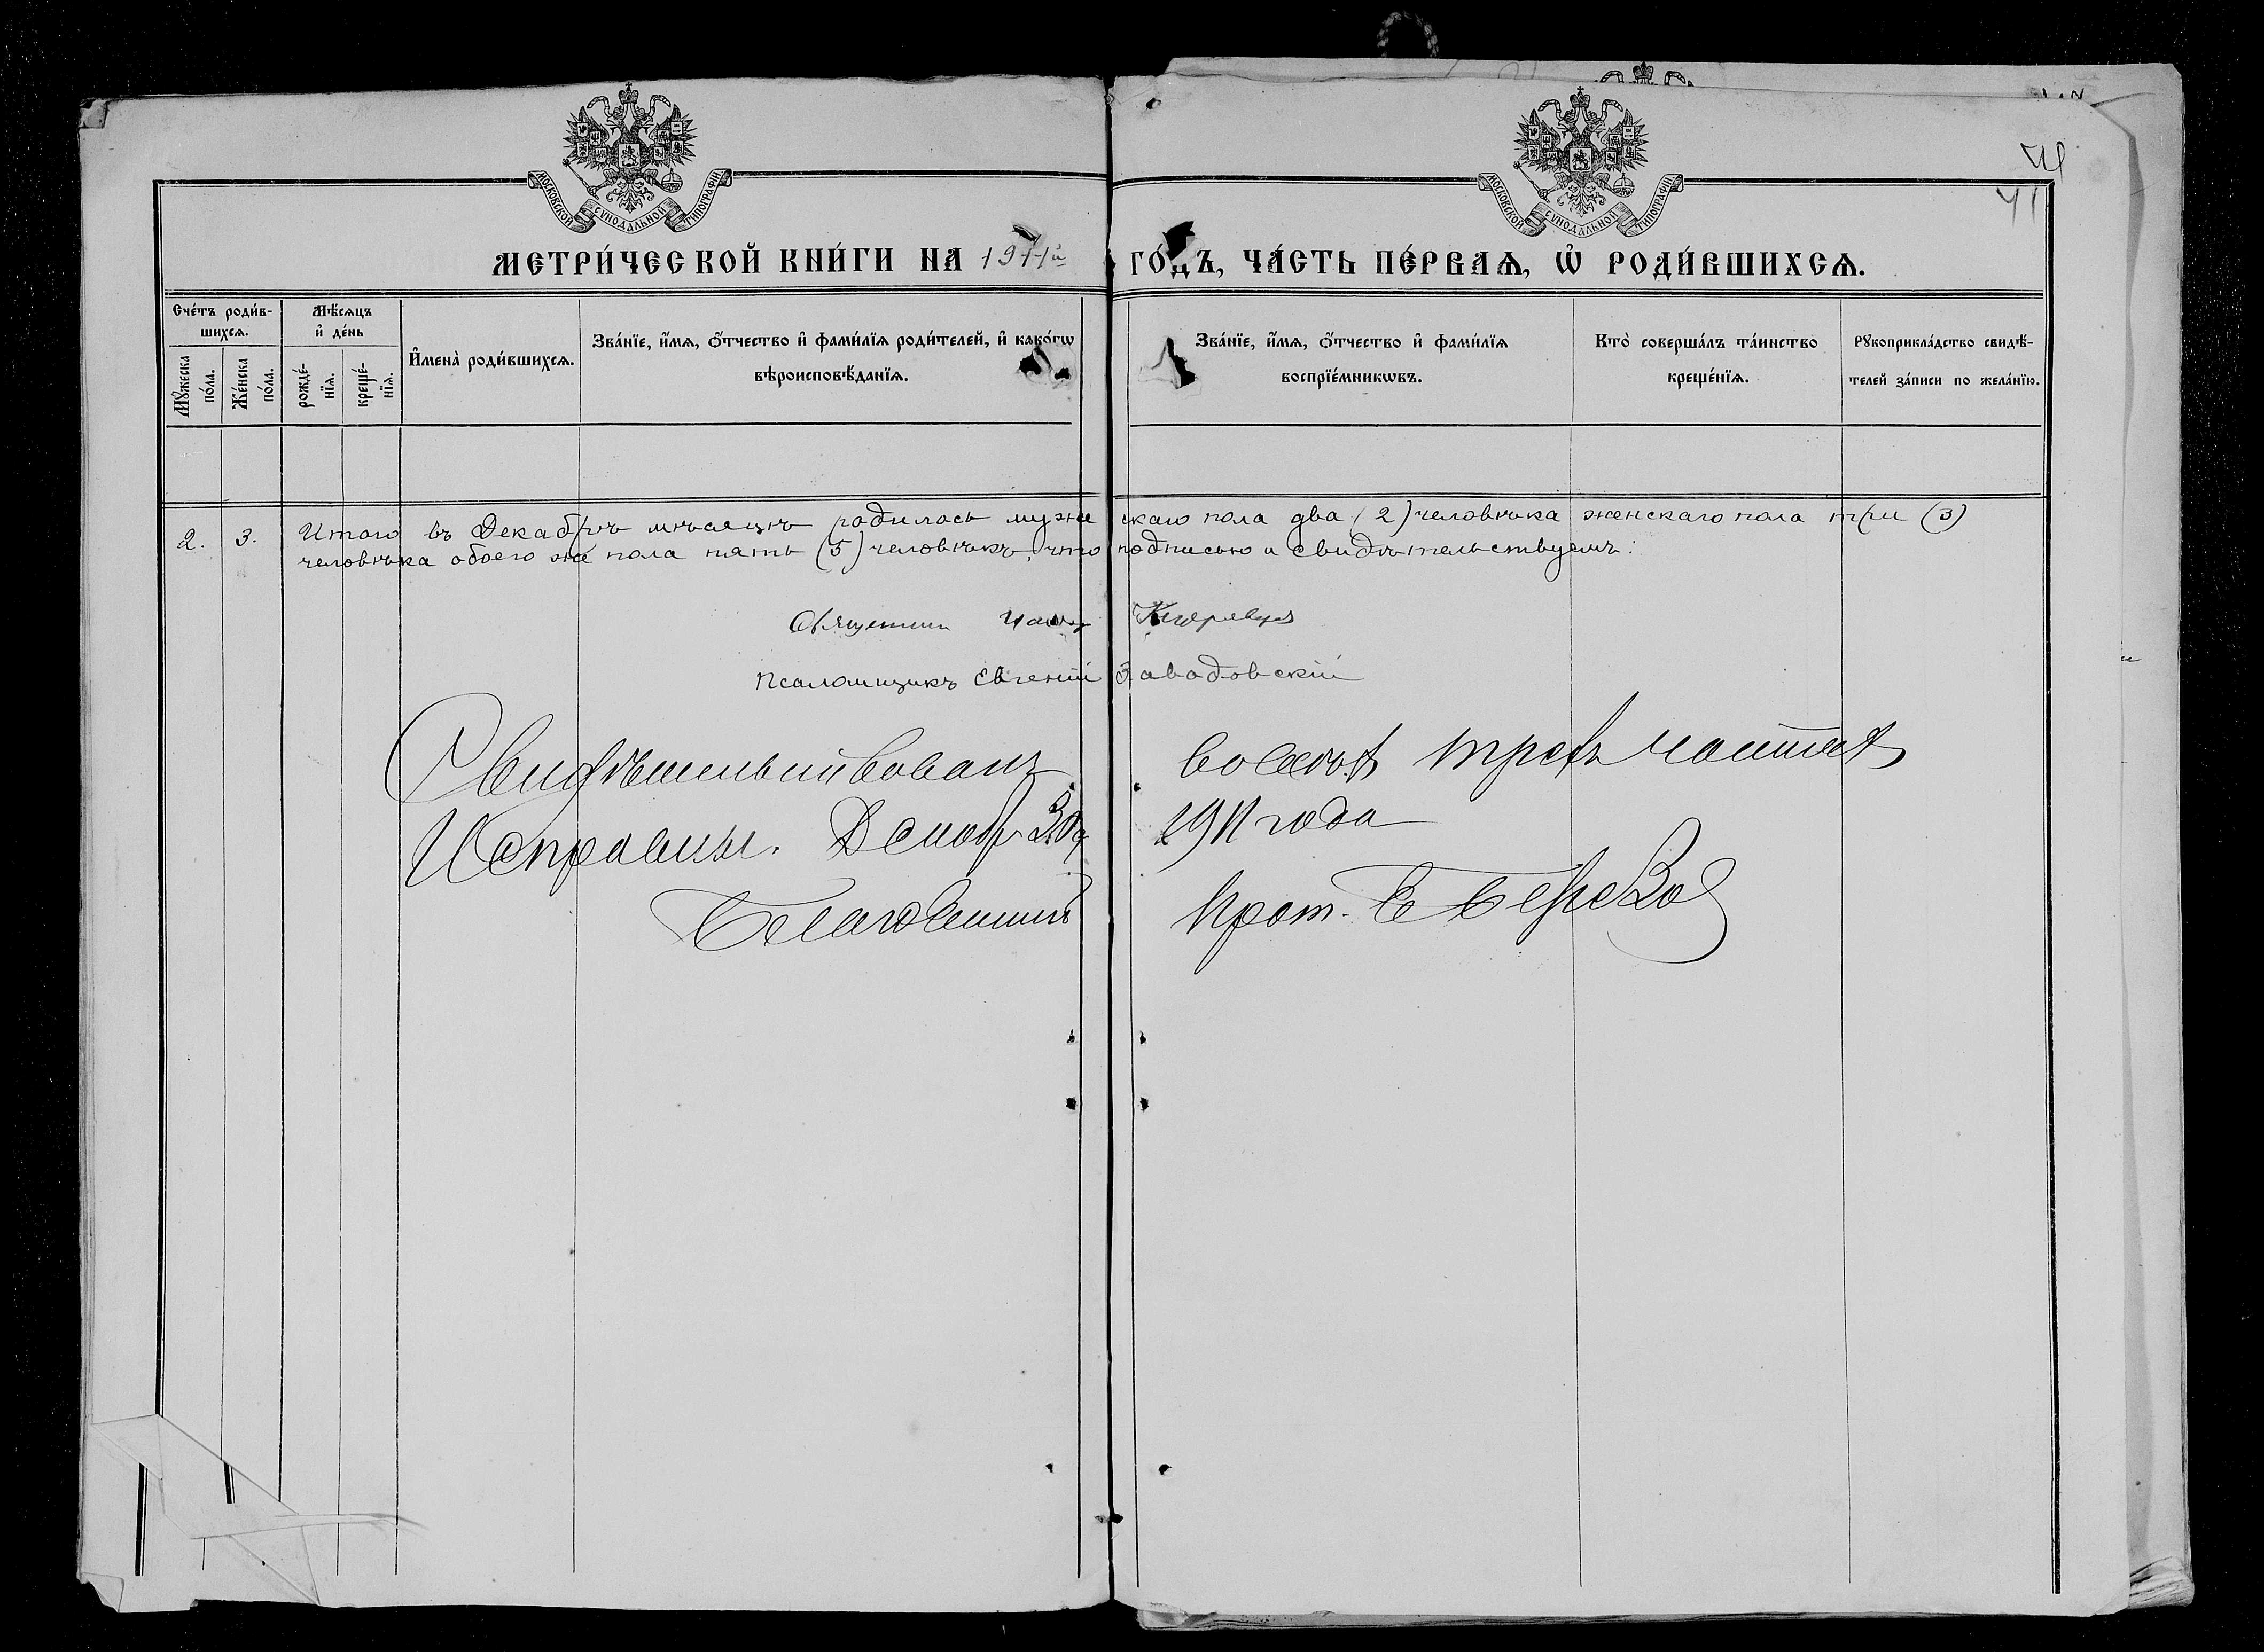 МОСКОВСКОЙ СѴНОДАЛЬНОЙ ТИПОГРАФІИ.
МОСКОВСКОЙ СѴНОДАЛЬНОЙ ТИПОГРАФІИ.
41
МЕТРИ́ЧЕСКОЙ КНИ́ГИ НА 1911й ГО́ДЪ, ЧА́СТЬ ПЕ́РВАѦ, Ѡ҆ РОДИ́ВШИХСѦ.
Сче́тъ роди́вшихсѧ.
Мꙋ́жеска по́ла.
Же́нска по́ла.
Мѣ́сѧцъ и҆ де́нь
рожде́нїѧ.
креще́нїѧ.
И҆мена̀ роди́вшихсѧ.
Зва́нїе, и҆́мѧ, ѻ҆́тчество и҆ фами́лїѧ роди́телей, и҆ како́гѡ
вѣроисповѣ́данїѧ.
Зва́нїе, и҆́мѧ, ѻ҆́тчество и҆ фами́лїѧ
воспрїе́мникѡвъ.
Кто̀ соверша́лъ та́инство
креще́нїѧ.
Рꙋкоприкла́дство свидѣ́-
телей за́писи по жела́нїю.
2. 3. Итого въ Декабрѣ мѣсяцѣ родилось мужескаго пола два (2) человѣка женскаго пола три (3)
человѣка обоего же пола пять (5) человѣкъ, что подписью и свидѣтельствуемъ:
Священник
Псаломщикъ Евгеній Завадовскій
Свидѣтельствовалъ во всѣхъ трехъ частяхъ
Исправны. Декабр 30 д 1911 года
Благочинный Прот.